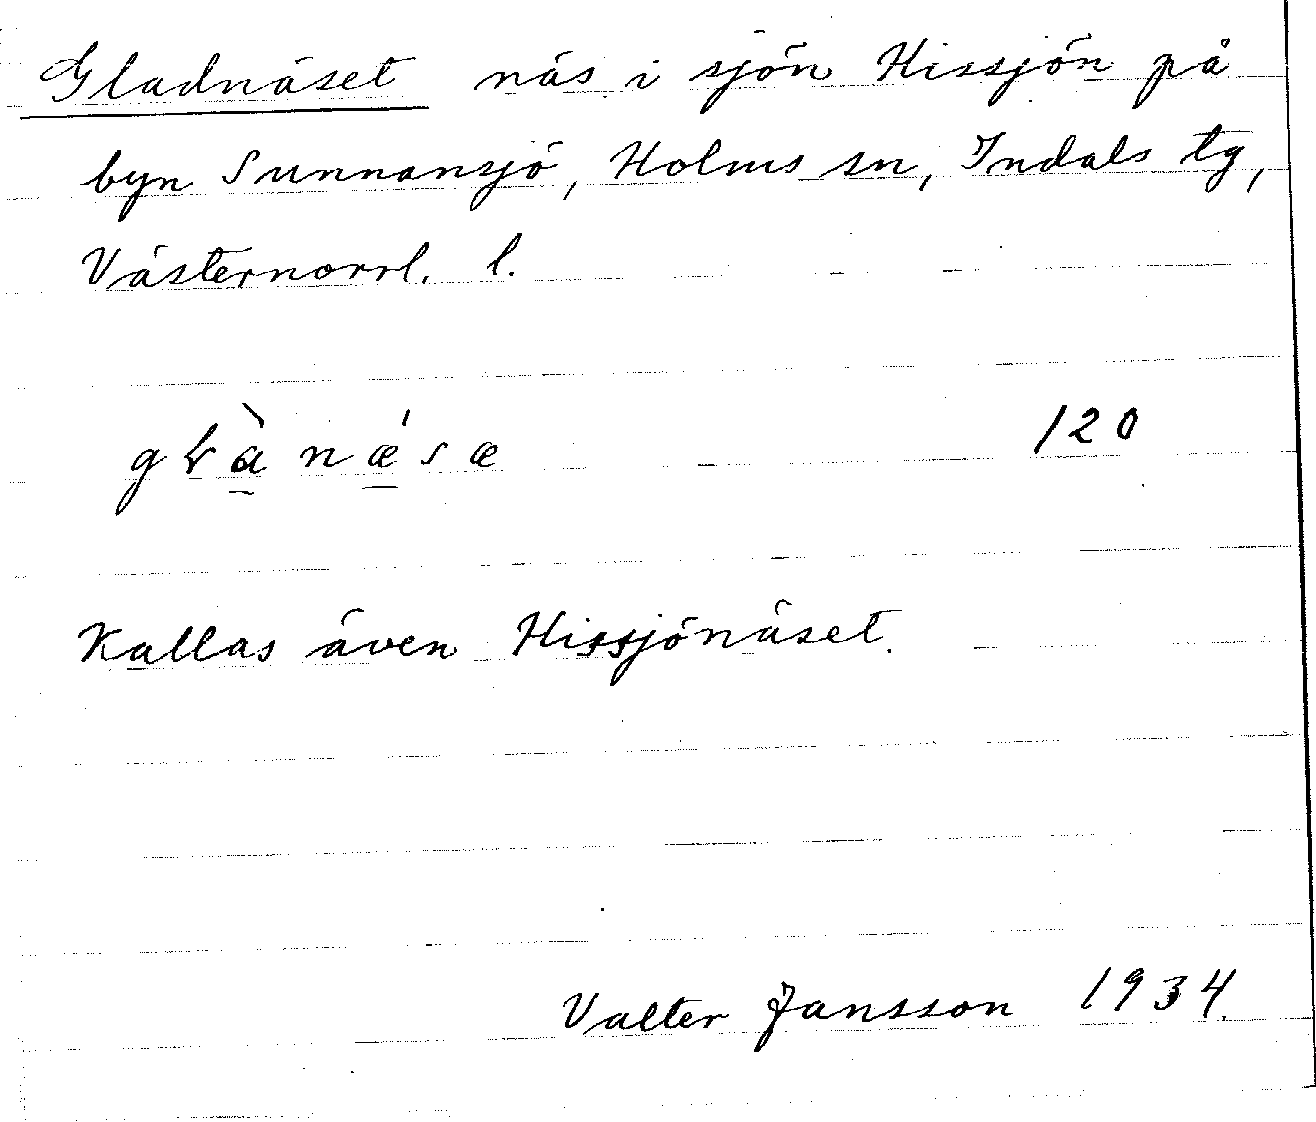 Gladnäset näs i sjön Hissjön på
byn Sunnansjö, Holms sn, Indals tg,
Västernorrl. l.
glànǽsæ 120
Kallas även Hissjönäset.
Valter Jansson 1934